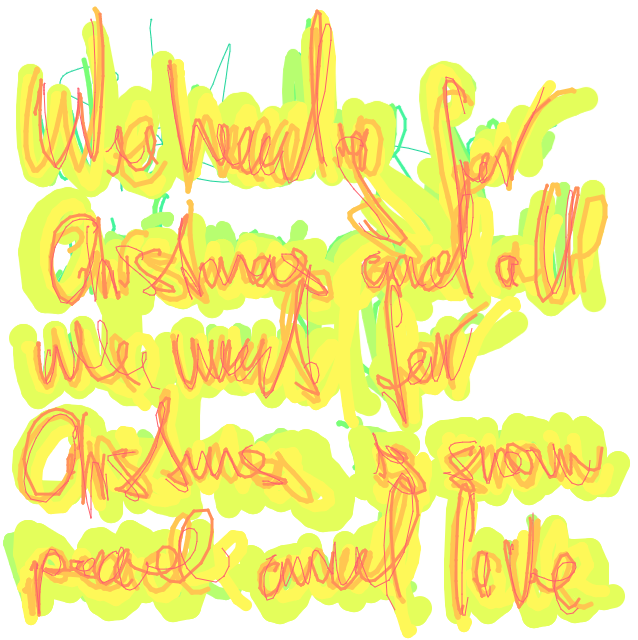 We for
Christmas and all
we want for
Christmas is snow
peace and love